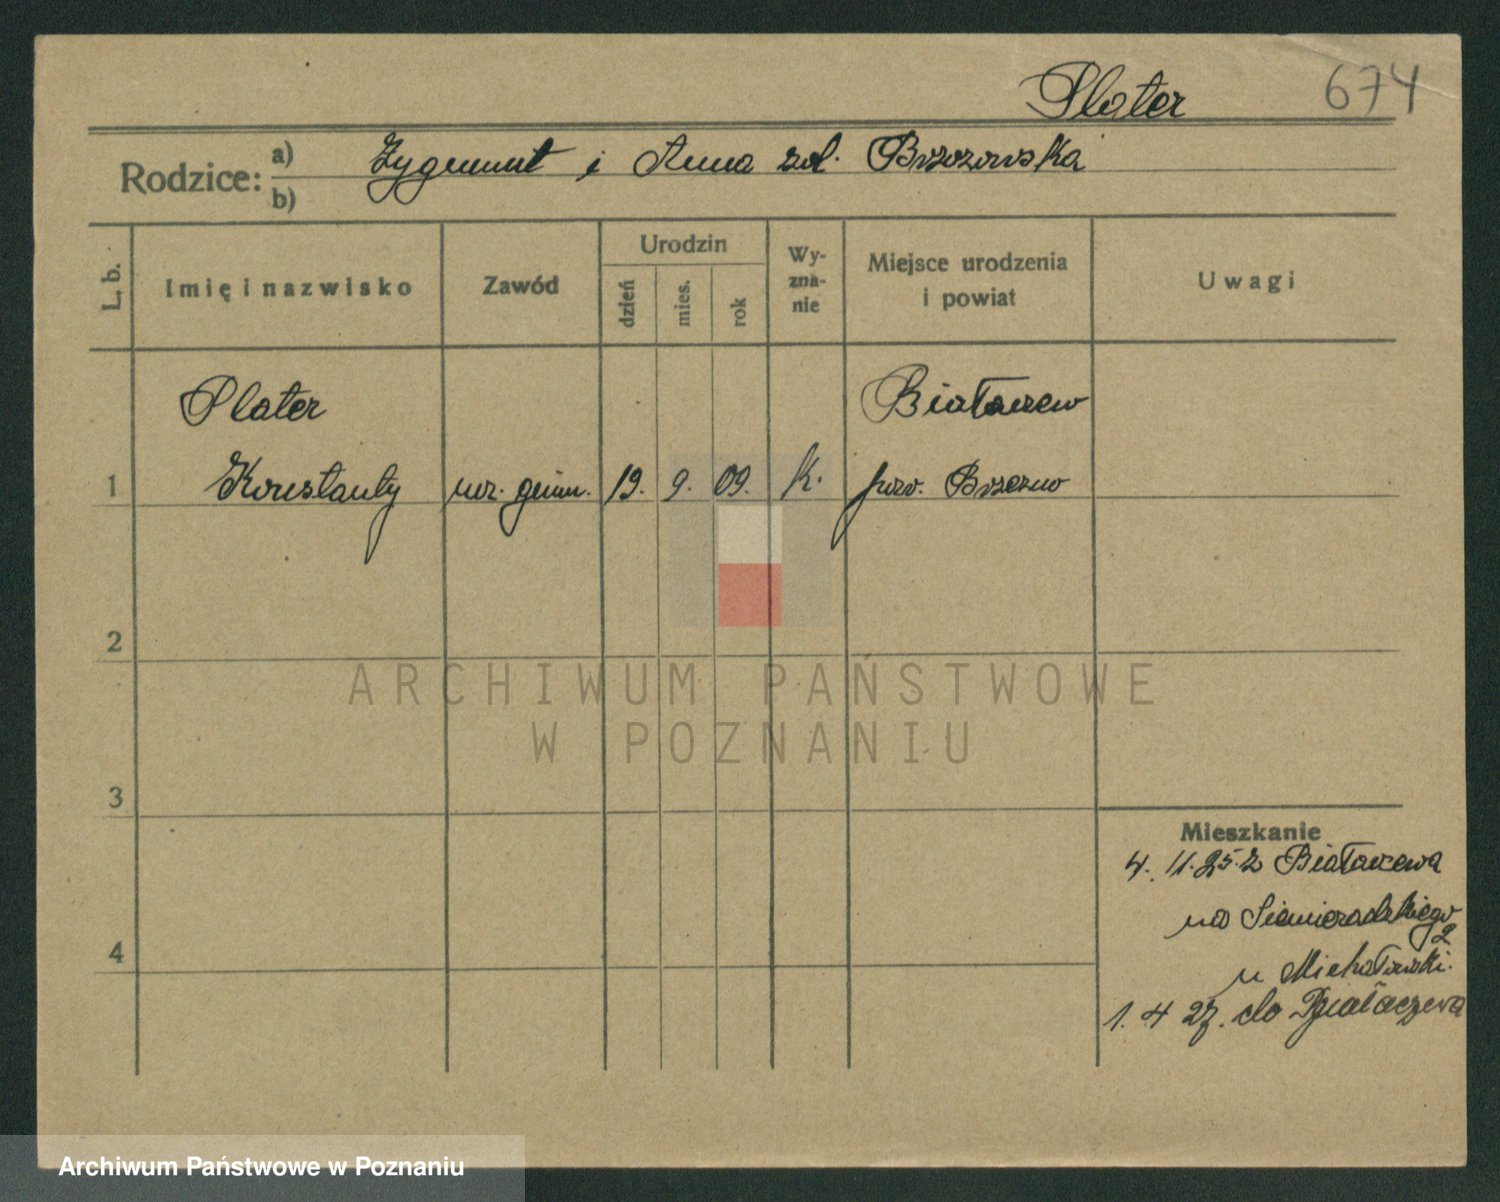 Plater 674
Rodzice: a) Zygmunt i Anna zol. Brzozowska
b)
L. b. Imię i nazwisko Zawód Urodzin dzień mies. rok Wyznanie Miejsce urodzenia i powiat Uwagi
Plater Białaczew
1 Konstanty ucz. gimn. 19. 9. 09. k. pow. Brzezno
2
3
4
Mieszkanie
4. 11. 25. z Białaczewa
na Siemieradzkiego
2
u Michałowski.
1. 4 27. do Białaczewa
ARCHIWUM PAŃSTWOWE
W POZNANIU
Archiwum Państwowe w Poznaniu